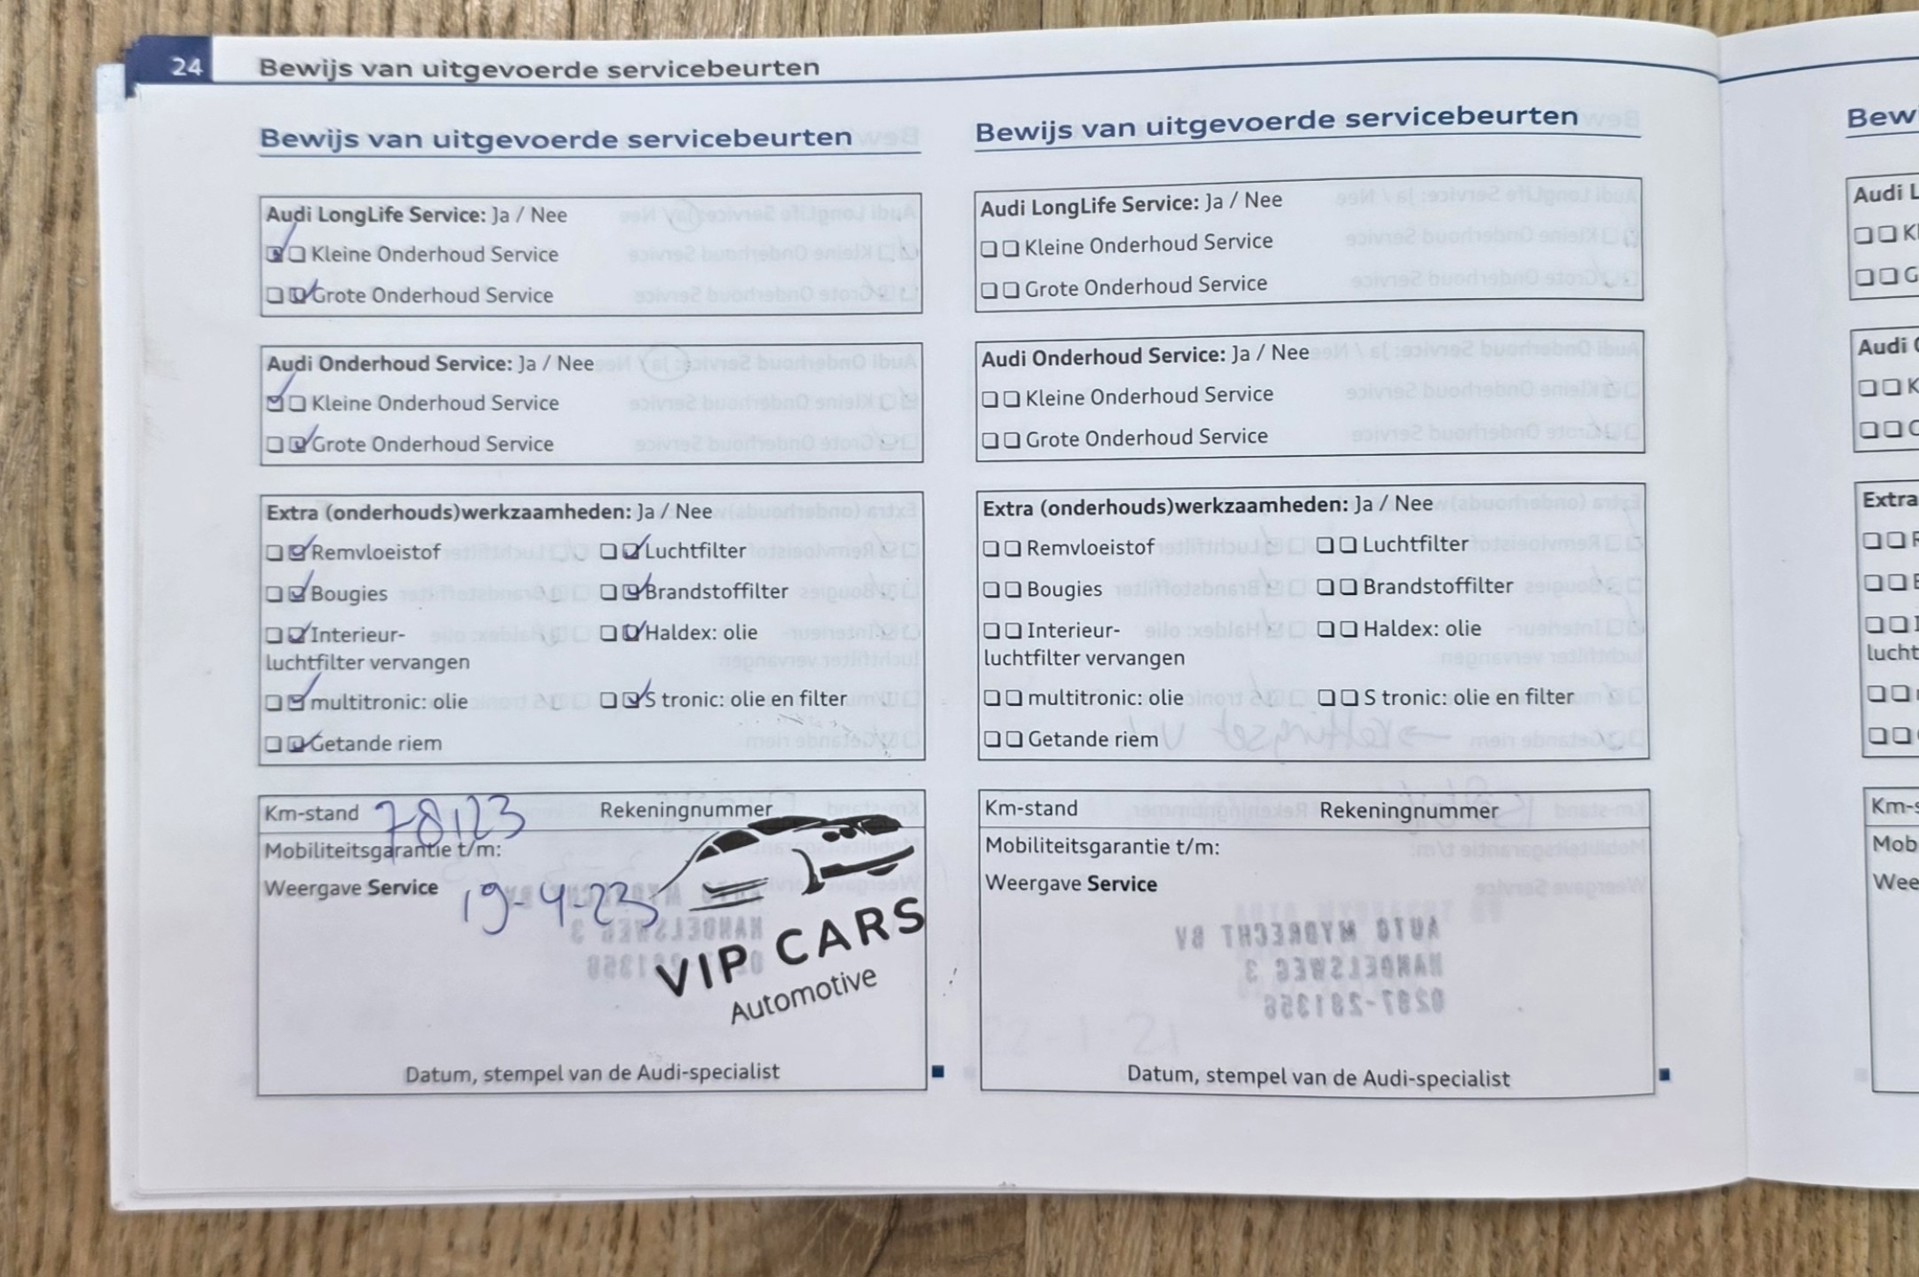 24 Bewijs van uitgevoerde servicebeurten
Bewijs van uitgevoerde servicebeurten
Audi LongLife Service: Ja / Nee
Kleine Onderhoud Service
Grote Onderhoud Service
Audi Onderhoud Service: Ja / Nee
Kleine Onderhoud Service
Grote Onderhoud Service
Extra (onderhouds)werkzaamheden: Ja / Nee
Remvloeistof Luchtfilter
Bougies Brandstoffilter
Interieur- Haldex: olie
luchtfilter vervangen
multitronic: olie S tronic: olie en filter
Getande riem
Km-stand 78123 Rekeningnummer
Mobiliteitsgarantie t/m:
Weergave Service 19-4-23
VIP CARS
Automotive
Datum, stempel van de Audi-specialist
Bewijs van uitgevoerde servicebeurten
Audi LongLife Service: Ja / Nee
Kleine Onderhoud Service
Grote Onderhoud Service
Audi Onderhoud Service: Ja / Nee
Kleine Onderhoud Service
Grote Onderhoud Service
Extra (onderhouds)werkzaamheden: Ja / Nee
Remvloeistof Luchtfilter
Bougies Brandstoffilter
Interieur- Haldex: olie
luchtfilter vervangen
multitronic: olie S tronic: olie en filter
Getande riem
Km-stand Rekeningnummer
Mobiliteitsgarantie t/m:
Weergave Service
AUTO MYDRECHT BV
HANDELSWEG 3
0297-281358
Datum, stempel van de Audi-specialist
Bew
Audi L
K
G
Audi
K
Extra
lucht
Km-s
Mob
Wee